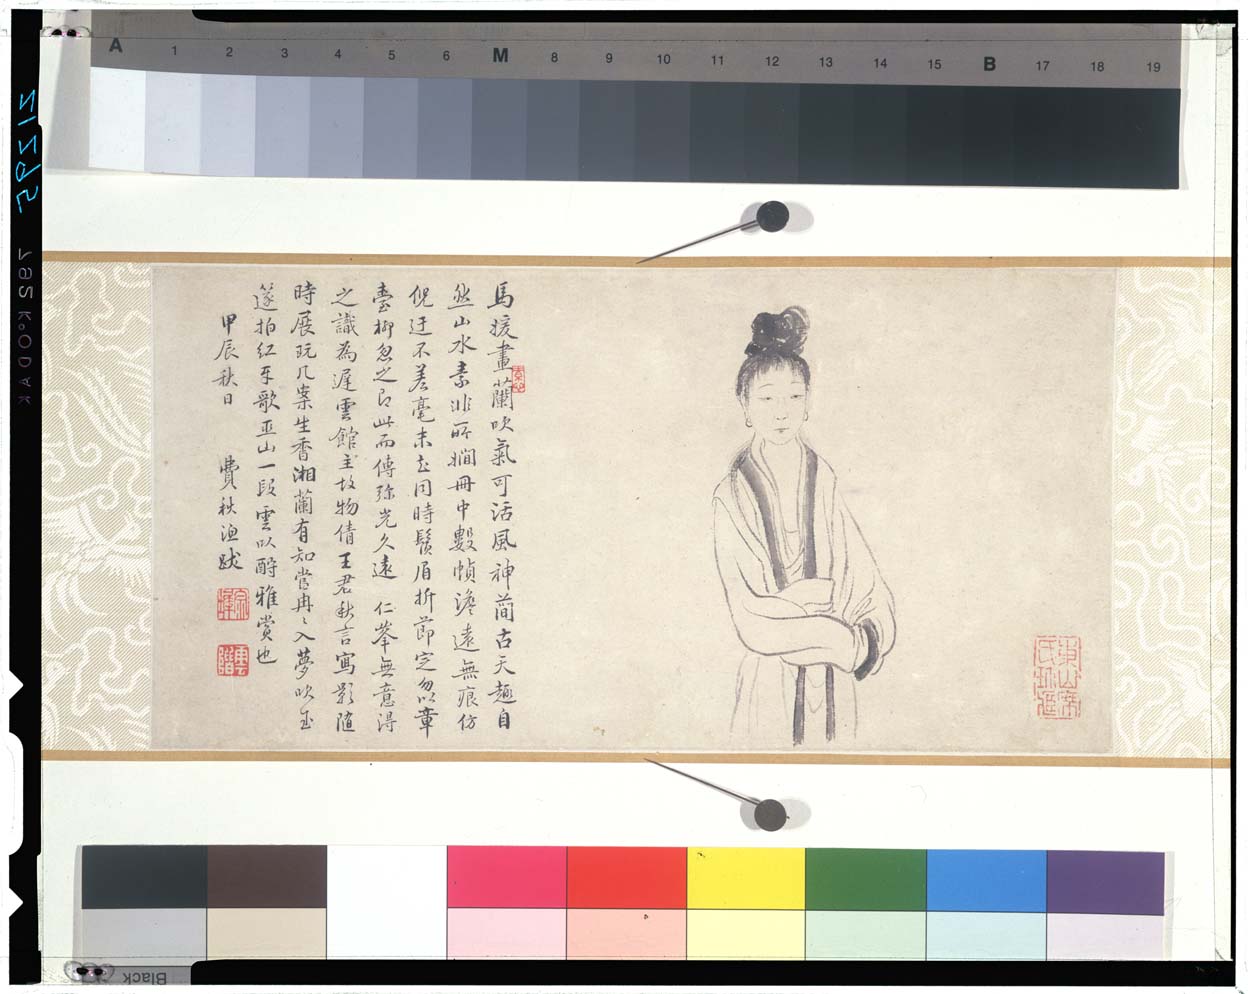 A 1 2 3 4 5 6 M 8 9 10 11 12 13 14 15 B 17 18 19
馬湲畫蘭吹氣可活風神蕳古天趣自
然山水素非所嫺冊中數幀澹遠無痕仿
倪迂不差毫末志同時鬚眉折節定勿以章
臺柳忽之即此而傳弥光久遠 仁峯無意得
之識為遲雲館主故物倩王君秋言寫影隨
時展玩几案生香湘蘭有知當冉〻入夢吹玉
篴拍红牙歌巫山一段雲以酹雅賞也
甲辰秋日 費秋漁跋
Black